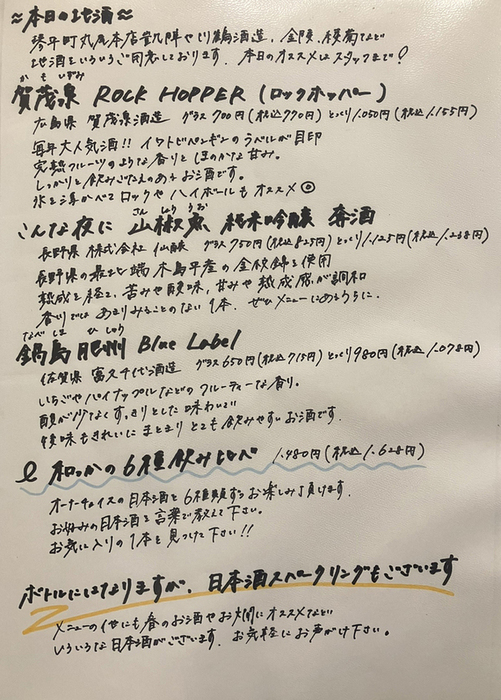 ≈本日の地酒≈
琴平町丸尾本店凱陣や川鶴酒造、金陵、綾菊など
地酒をいろいろご用意しております。本日のオススメはスタッフまで!
かもいずみ
賀茂泉 ROCK HOPPER (ロックホッパー)
広島県 賀茂泉酒造 グラス700円(税込770円)とっくり1,050円(税込1,155円)
毎年大人気酒!! イワトビペンギンのラベルが目印
完熟フルーツのような香りとほのかな甘み。
しっかりと飲みごたえのあるお酒です。
氷を浮かべてロックやハイボールもオススメ◎
さんしょううお
こんな夜に 山椒魚 純米吟醸 奔酒
長野県 株式会社 仙醸 グラス750円(税込825円)とっくり1,125円(税込1,238円)
長野県の最北端 木島平産の金紋錦を使用
熟成を経て、苦みや酸味、甘みや熟成感が調和
香りではあまりみることのない1本。ぜひメニューにあるうちに。
なべしま ひしゅう
鍋島 肥州 Blue Label
佐賀県 富久千代酒造 グラス650円(税込715円)とっくり980円(税込1,078円)
いちごやパイナップルなどのフルーティーな香り。
酸が少なくすっきりとした味わいで
後味もきれいにまとまりとても飲みやすいお酒です。
和っかの6種飲み比べ 1,480円(税込1,628円)
オーナーチョイスの日本酒を6種類ずつお楽しみ頂けます。
お好みの日本酒を言葉で教えて下さい。
お気に入りの1本を見つけて下さい!!
ボトルにはなりますが、日本酒スパークリングもございます
メニューの他にも春のお酒やお燗にオススメなど
いろいろな日本酒がございます。お気軽にお声がけ下さい。